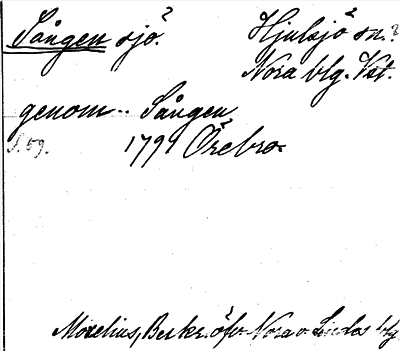 Sången sjö?
Hjulsjö sn.?
Nora blg. Vst.
genom .. Sången
S. 59.
1791 Örebro
Morelius, Beskr. öfv. Nora o. Lindes blg